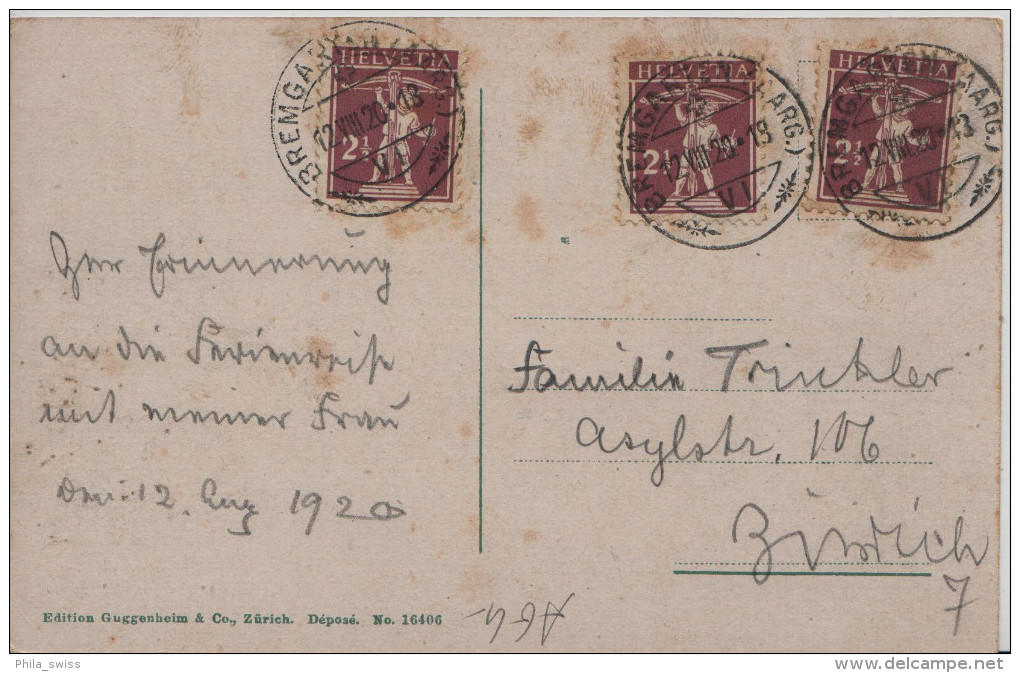 BREMGARTEN (AARG.)
12.VIII.20-18
VI
HELVETIA
2½
BREMGARTEN (AARG.)
12.VIII.20-19
VI
HELVETIA
2½
BREMGARTEN (AARG.)
12.VIII.20-13
VI
HELVETIA
2½
Zur Erinnerung
an die Ferienreise
mit meiner Frau
Den 12. Aug 1920
Familie Trinkler
Asylstr. 106
Zürich
7
Edition Guggenheim & Co., Zürich. Déposé. No. 16406
Phila_swiss
www.delcampe.net